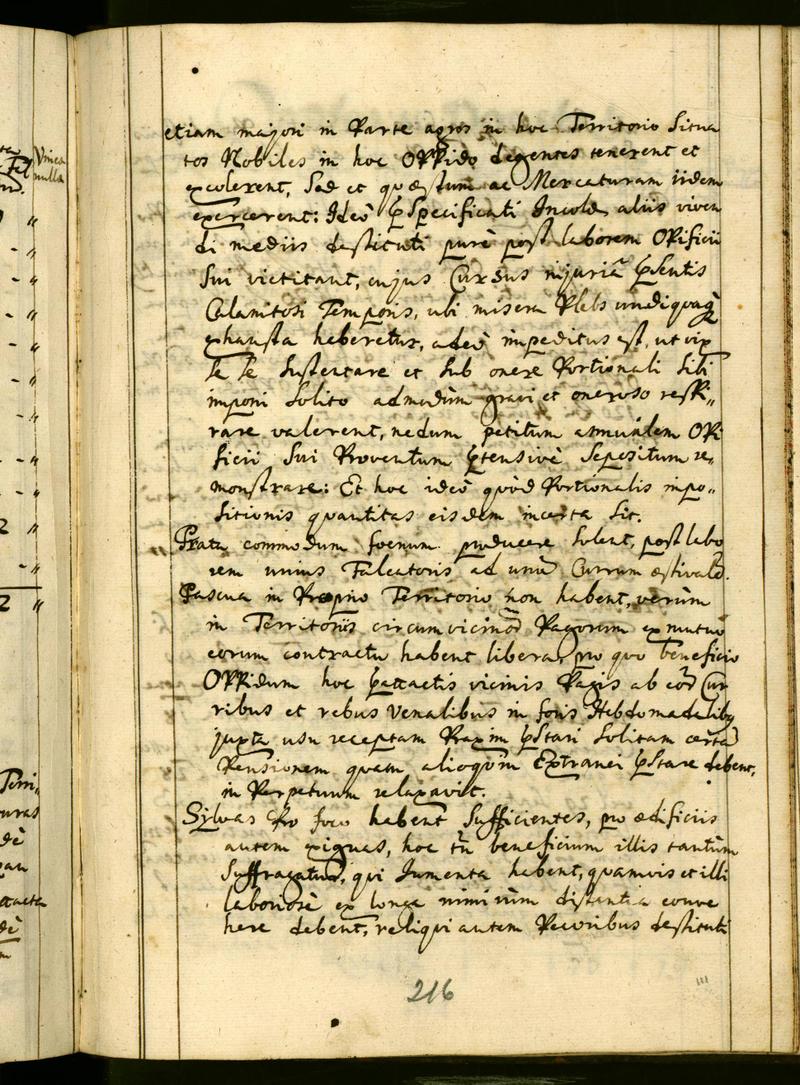 etiam majori in Parte agros in hoc Territorio Situa
tos Nobiles in hoc OPPido degentes tenerent et
excolerent, Sed et quæstum ac Mercaturam iidem
exercerent: Ideò Specificati Incolæ aliis viven
di mediis destituti purè post laborem OPificii
Sui victitant, cujus Cursus injuriâ
Calamitosi Temporis, ubi misera Plebs undiquaqꝫ
exhausta haberetur, adeò impeditus est, ut vix
se se Sustentare et Sub onere Portionali Sibi
imponi Solito admodùm gravi et oneroso respi„
rare valerent, nedum petitum OPi
ficii Sui Proventum Sepositum re„
monstrare: Et hoc ideò quòd Portionalis impo„
Sitionis quantitas eisdem incerta Sit.
Prata commodum foenum producere Solent, post labo
rem unius Falcatoris ad unũ Currum æstivalẽ.
Pascua in Proprio Territorio non habent, verùm
in Territoriis Pagorum ex mutuo
eorum contractu habent libera, pro quo beneficio
OPPidum hoc vicinis Pagis ab Cur
ribus et rebus Venalibus in foris
juxta usu receptam Praxim Solitam certã
Pensionem quam alioquin Extranei debent,
in Perpetuum relaxavit.
Sylvas Pro foco habent Sufficientes, pro ædificiis
autem exiguas, hoc tñ beneficium illis tantùm
Suffragatur, qui Jumenta habent, quamvis et illi
laboriosè ex longa nimiùm distantia conve
here debent, reliqui autem Pecoribus destituti
216
Vinea
nulla